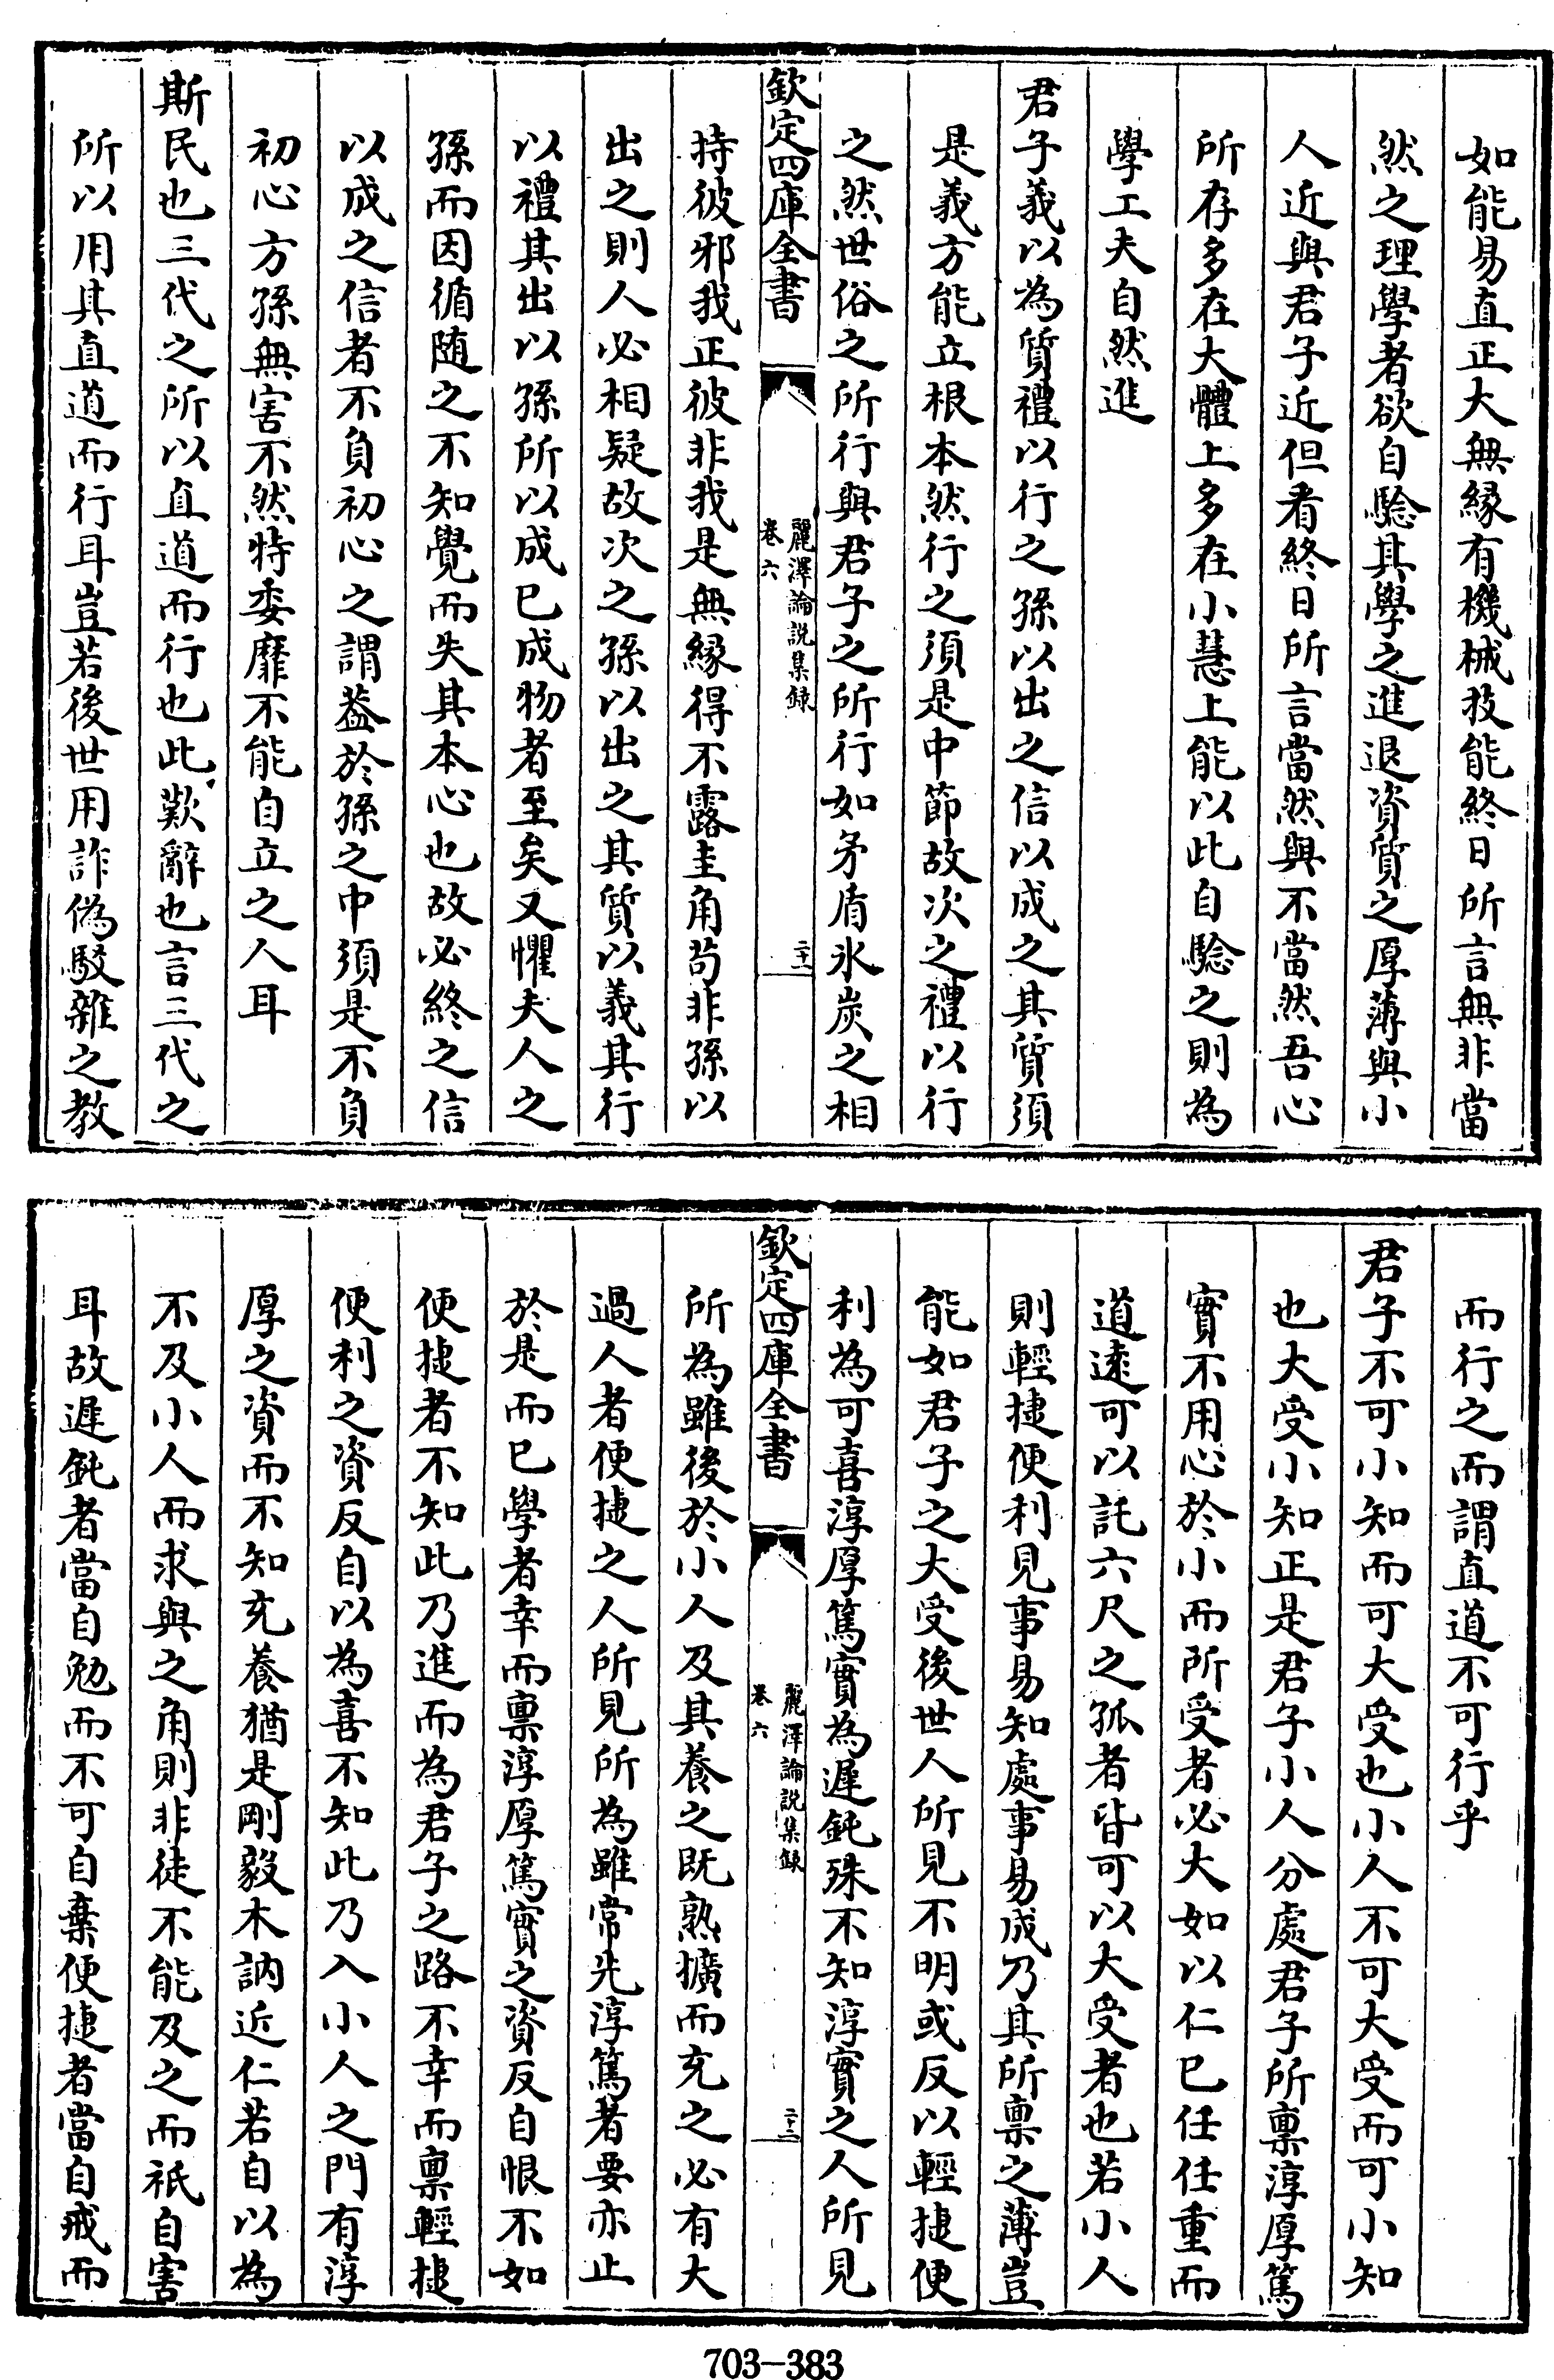 如能易直正大無縁有機械技能終日所言無非當
然之理學者欲自驗其學之進退資質之厚薄與小
人近與君子近但看終日所言當然與不當然吾心
所存多在大體上多在小慧上能以此自驗之則為
學工夫自然進
君子義以為質禮以行之孫以出之信以成之其質須
是義方能立根本然行之須是中節故次之禮以行
之然世俗之所行與君子之所行如矛盾氷炭之相
欽定四庫全書
麗澤論説集録
卷六
二十一
持彼邪我正彼非我是無縁得不露圭角苟非孫以
出之則人必相疑故次之孫以出之其質以義其行
以禮其出以孫所以成已成物者至矣又懼夫人之
孫而因循随之不知覺而失其本心也故必終之信
以成之信者不負初心之謂葢於孫之中須是不負
初心方孫無害不然特委靡不能自立之人耳
斯民也三代之所以直道而行也此歎辭也言三代之
所以用其直道而行耳豈若後世用詐偽駁雜之教
而行之而謂直道不可行乎
君子不可小知而可大受也小人不可大受而可小知
也大受小知正是君子小人分處君子所禀淳厚篤
實不用心於小而所受者必大如以仁已任任重而
道逺可以託六尺之孤者皆可以大受者也若小人
則輕捷便利見事易知處事易成乃其所禀之薄豈
能如君子之大受後世人所見不明或反以輕捷便
利為可喜淳厚篤實為遲鈍殊不知淳實之人所見
欽定四庫全書
麗澤論説集録
卷六
二十二
所為雖後於小人及其養之既熟擴而充之必有大
過人者便捷之人所見所為雖常先淳篤者要亦止
於是而已學者幸而禀淳厚篤實之資反自恨不如
便捷者不知此乃進而為君子之路不幸而禀輕捷
便利之資反自以為喜不知此乃入小人之門有淳
厚之資而不知充養猶是剛毅木訥近仁若自以為
不及小人而求與之角則非徒不能及之而祇自害
耳故遲鈍者當自勉而不可自棄便捷者當自戒而
703-383